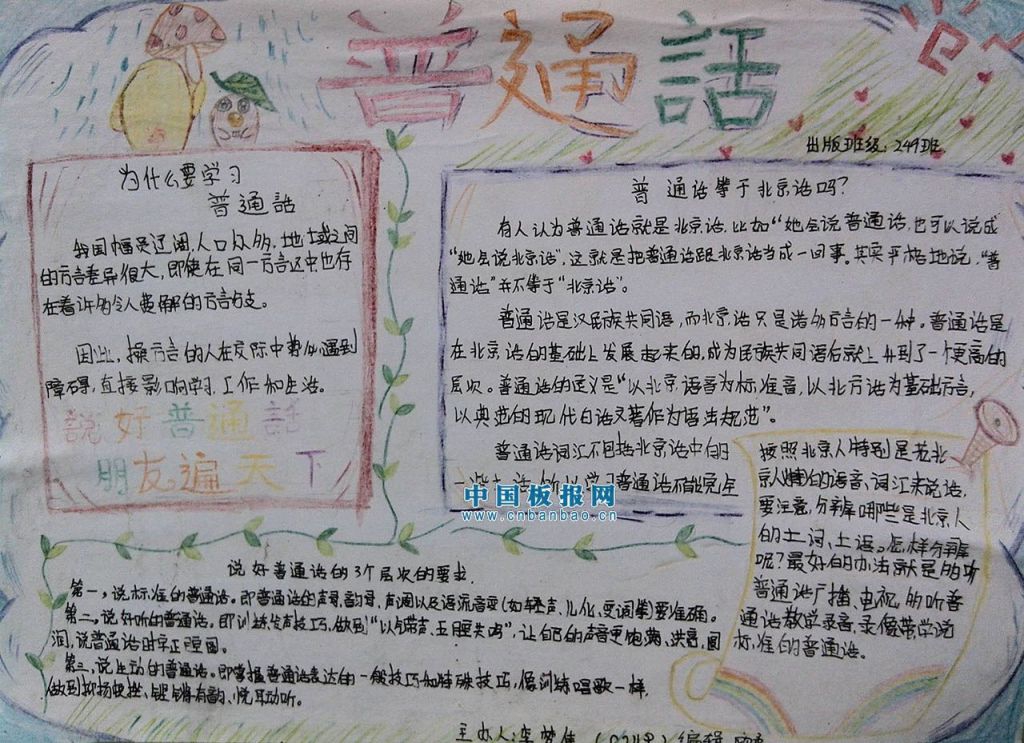 普通話
出版班级:249班
为什么要学习
普通話
我国幅员辽阔,人口众多,地域之间
的方言差异很大,即使在同一方言区中也存
在着许多令人费解的方言
因此,操方言的人在交际中势必遇到
障碍,直接影响学习、工作和生活。
說好普通話
朋友遍天下
普通话等于北京话吗?
有人认为普通话就是北京话,比如“她会说普通话,也可以说成
“她会说北京话”,这就是把普通话跟北京话当成一回事。其实严格地说,“普
通话”并不等于“北京话”。
普通话是汉民族共同语,而北京话只是诸多方言的一种。普通话是
在北京话的基础上发展起来的,成为民族共同语后就上升到了一个更高的
层次。普通话的定义是“以北京语音为标准音,以北方话为基础方言,
以典范的现代白话文著作为语法规范”。
普通话词汇不包括北京话中的
一些土话,所以学习普通话不能完全
按照北京人特别是老北
京人的语音、词汇来说话,
要注意分辨哪些是北京人
的土词、土语。怎样分辨
呢?最好的办法就是多听
普通话广播、电视,多听普
通话教学录音、录像带学说
标准的普通话。
中国板报网
www.cnbanbao.cn
说好普通话的3个层次的要求
第一,说标准的普通话。即普通话的声母、韵母、声调以及语流音变(如轻声、儿化、变调等)要准确。
第二,说好听的普通话。即训练发声技巧,做到“以气带声、”,让自己的声音更饱满、洪亮、圆
润,说普通话时字正腔圆。
第三,说生动的普通话。即掌握普通话表达的一般技巧和特殊技巧,像训练唱歌一样,
做到抑扬快挫、铿锵有韵、悦耳动听。
主办人:李梦 编辑